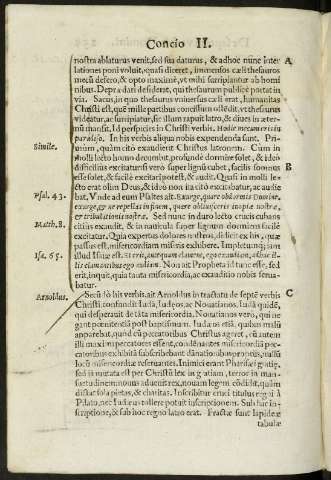 Concio II.
nostra ablaturus venit, sed sua daturus, & adhoc nunc inter A
lationes poni voluit, quasi diceret, immensos cæli thesauros
mecũ defero, & opto maximè, vt mihi surripiantur ab homi
nibus. Deprædari desiderat, qui thesaurum publicè portat in
via. Sacus, in quo thesaurus vniuersus cæli erat, humanitas
Christi est, quẽ mille partibus concilium ostẽdit, vt thesaurus
videatur, ac surripiatur, sic illum rapuit latro, & diues in æter
nũ mansit. Id perspicies in Christi verbis. Hodie mecum eris in
paradiso. In his verbis aliqua nobis expendenda sunt. Pri-
Simile. mùm, quàm citò exaudierit Christus latronem. Cum in
molli lecto homo decumbit, profundè dormire solet, & ideò
difficilius excitatur: si verò super lignũ cubet, facilis somnus B
esse solet, & facilè excitari potest, & audit. Quasi in molli le-
cto erat olim Deus, & ideò non ita citò excitabatur, ac audie
Psal. 43. bat, Vnde ad eum Psaltes ait. Exurge, quare obdormis Domine,
exurge, & ne repellas in finem, quare obliuisceris inopiæ nostræ,
& tribulationis nostræ. Sed nunc in duro lecto crucis cubans
Matth. 8. citius exaudit, & in nauicula super lignum dormiens facilè
excitatur. Quia expertus dolores nostros, didicit ex his, quæ
passus est, misericordiam miseris exhibere. Impletumq; iam
Isa. 65. illud Isaiæ est. Et erit, antequam clament, ego exaudiam, adhuc il-
lis clamantibus ego audiam. Non ait Propheta id tunc esse, sed
erit, inquit, quia tanta misericordia, ac exauditio nobis serua-
batur.
Arnoldus. Secũdò his verbis, ait Arnoldus in tractatu de septẽ verbis C
Christi, confundit Iudã, Iudæos, ac Nouatianos. Iudã quidẽ,
qui desperauit de tãta misericordia. Nouatianos verò, qui ne
gant pœnitentiã post baptismum. Iudæos etiã, quibus malũ
apparebat, quòd cũ peccatoribus Christus ageret, cũ autem
illi maximi peccatores essent, condẽnantes misericordiã pec-
catoribus exhibitã subscribebant dãnationibus proprijs, nullũ
locũ misericordiæ reseruantes. Inimici erant Pharisæi gratiæ,
sed iã mutata est per Christũ lex in gratiam, terror in man-
suetudinem: nouus aduenit rex, nouam legem cõdidit, quàm
dictat sola pietas, & charitas. Inscribitur cruci titulus regni à
Pilato, nec Iudæus tollere potuit inscriptionem. Sub hac in-
scriptione, & sub hoc regno latro erat. Fractæ sunt lapideæ
tabulæ